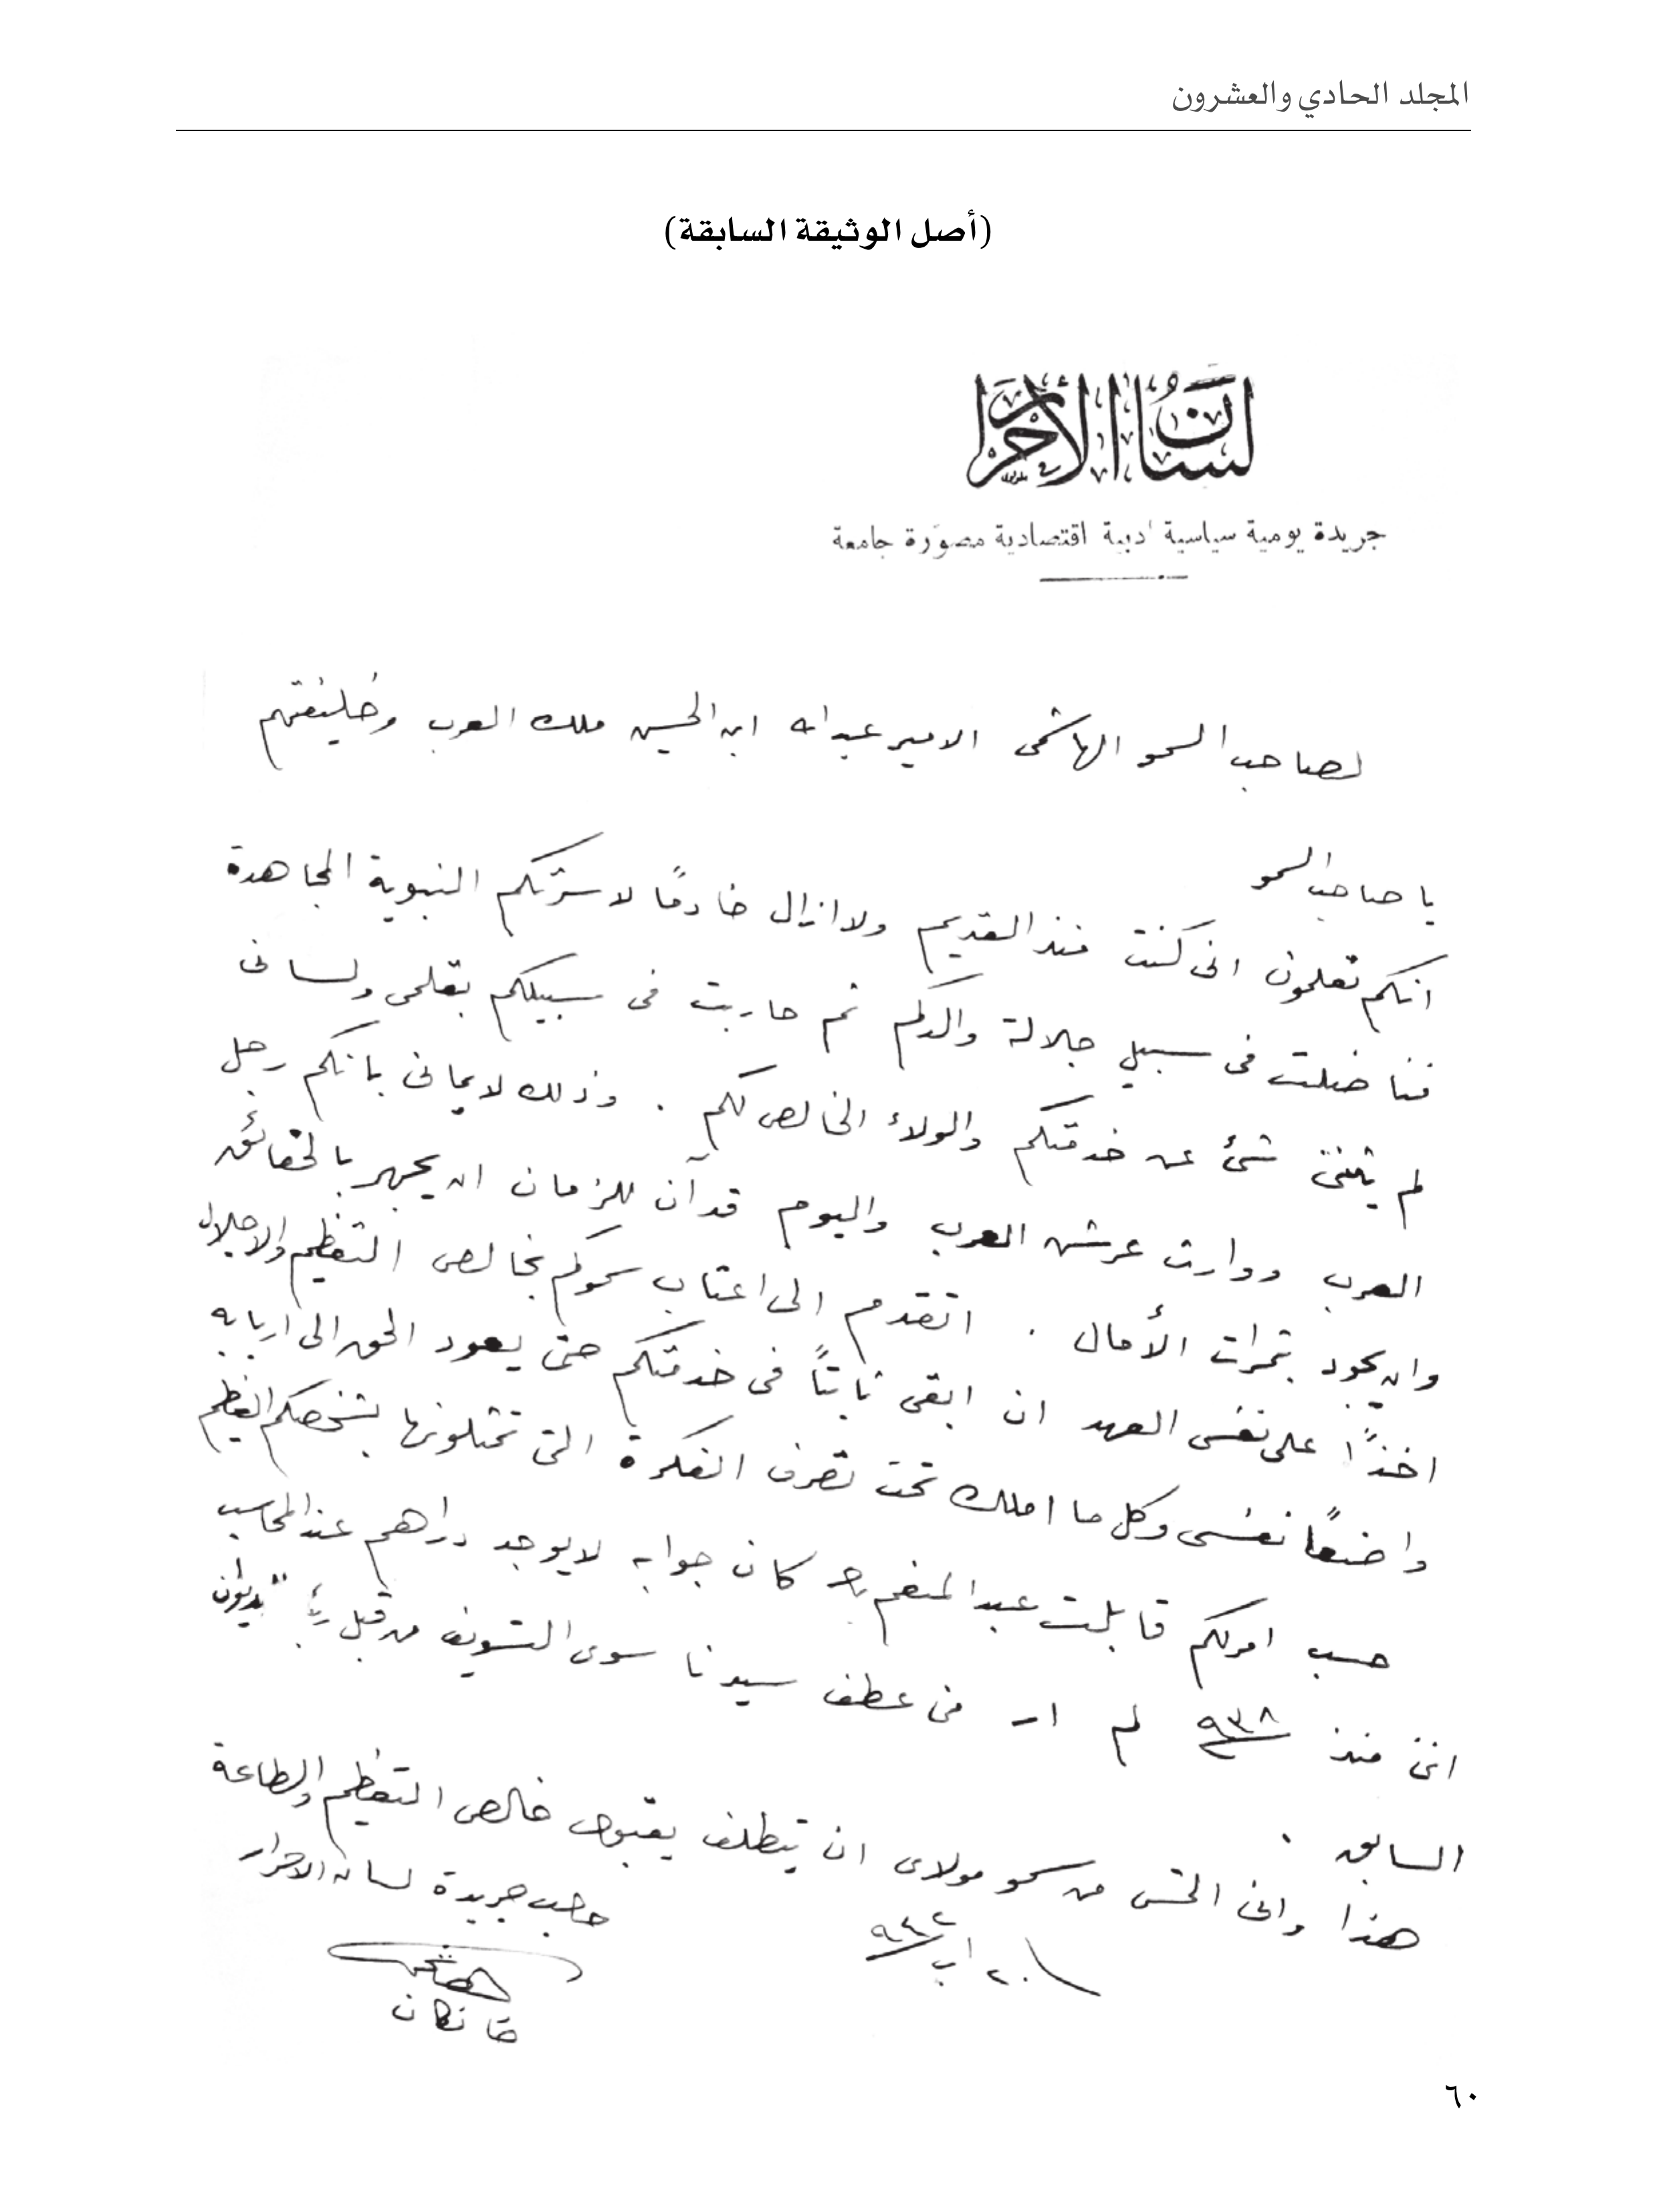 المجلد الحادي والعشرون
(أصل الوثيقة السابقة)
لسان الأحرار
جريدة يومية سياسية ادبية اقتصادية مصوّرة جامعة
لصاحب السمو الهاشمي الامير عبدالله ابن الحسين ملك العرب وخليفتهم
يا صاحب السمو
انكم تعلمون انى كنت منذ القديم ولا ازال خادمًا لاسرتكم النبوية المجاهدة
فناضلت فى سبيل جلالة والدكم ثم حاربت فى سبيلكم بقلمى ولسانى
لم يثننى شئ عن خدمتكم والولاء الخالص لكم . وذلك لايمانى بانكم رجل
العرب ووارث عرش العرب واليوم قد آن للزمان ان يجهر بالحقائق
وان يجود بثمرات الأمال . اتقدم الى اعتاب سموكم بخالص التعظيم والاجلال
اخذًا على نفسى العهد ان ابقى ثابتًا فى خدمتكم حتى يعود الحق الى اربابه
واضعًا نفسى وكل ما املك تحت تصرف الفكرة التى تمثلونها بشخصكم العظيم
حسب امركم قابلت عبد المنعم كان جوابه لا يوجد دراهم عند المحاسب
اننى منذ ٩٣٨ لم ار من عطف سيدنا سوى التسويف من قبل الديوان
السابق .
هذا وانى التمس من سمو مولاى ان يتطلف بقبول خالص التعظيم والطاعة
٢٠ اب ٩٤٢
صاحب جريدة لسان الاحرار
خانكان
٦٠